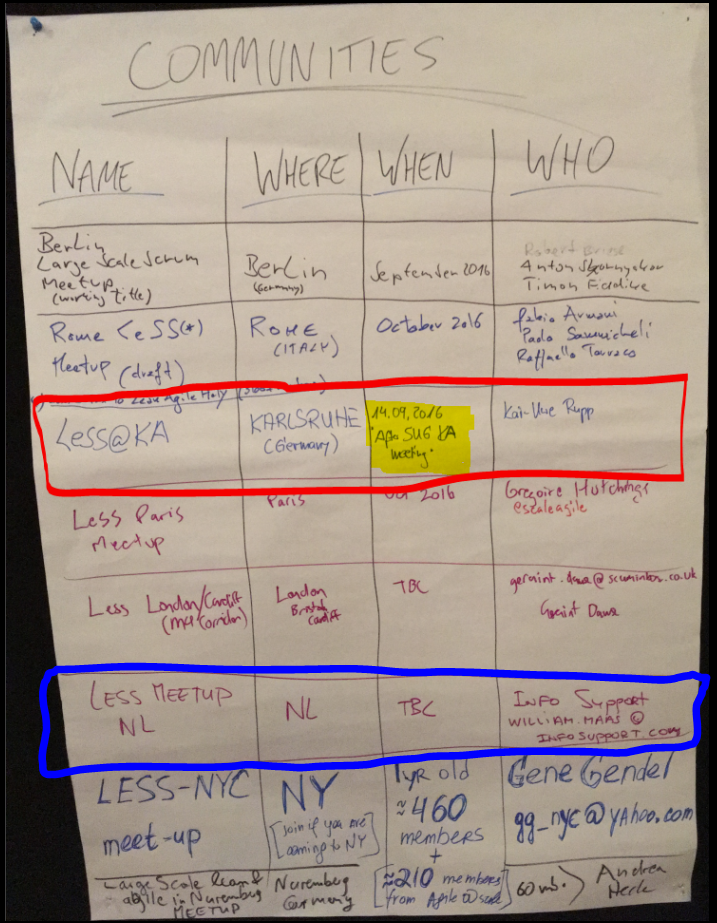 COMMUNITIES
NAME WHERE WHEN WHO
Berlin
Large Scale Scrum
Meetup
(working title)
Berlin
(Germany)
September 2016
Robert
Anton
Timon
Rome LeSS(*)
Meetup (draft)
ROME
(ITALY)
October 2016
Fabio Armani
Paolo Sammicheli
Raffaello
Less Agile Italy
LeSS@KA
KARLSRUHE
(Germany)
14.09.2016
SUG KA
meeting"
Kai-Uwe Rupp
Less Paris
Meetup
Paris
Oct 2016
Gregoire Hutchings
@scaleagile
Less London/Cardiff
(M4 Corridor)
London
Bristol
Cardiff
TBC
Geraint
LESS MEETUP
NL
NL
TBC
INFO SUPPORT
WILLIAM.MAAS @
INFOSUPPORT.COM
LESS-NYC
meet-up
NY
[Join if you are
coming to NY]
1yr old
≈460
members
+
[≈210 members
from Agile @ scale]
Gene Gendel
gg_nyc@yahoo.com
Large Scale Lean &
agile in Nuremberg
MEETUP
Nuremberg
Germany
60 mb.
Andrea